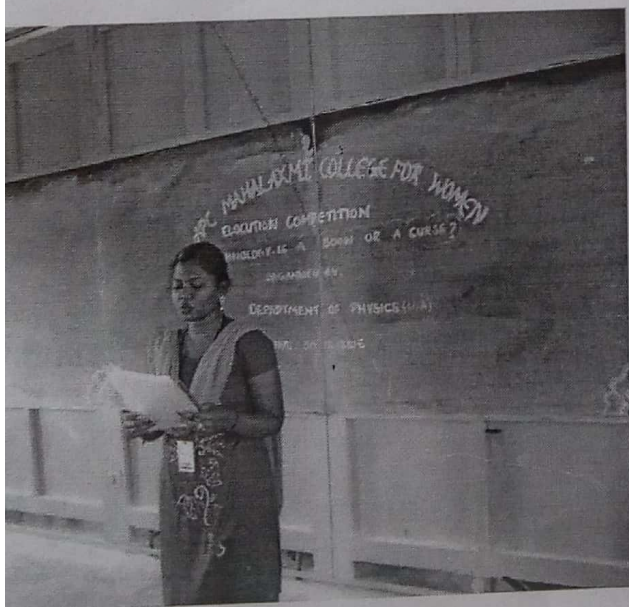 MAHALAXMI COLLEGE FOR WOMEN
ELOCUTION COMPETITION
IS A BOON OR A CURSE?
ORGANISED BY,
DEPARTMENT OF PHYSICS